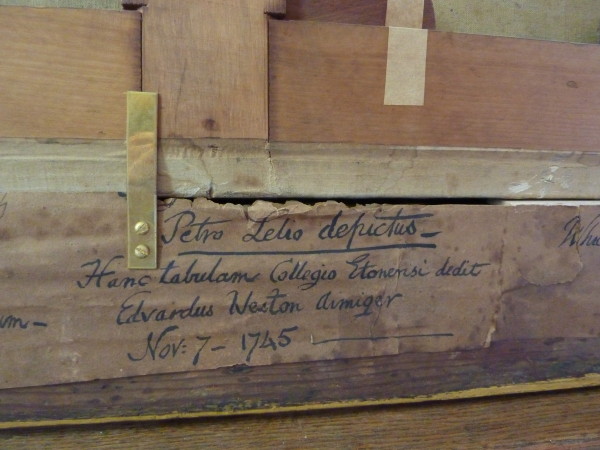 Petro Lelio depictus—
Hanc tabulam Collegio Etonensi dedit
Edvardus Weston Armiger
Nov: 7— 1745 ——